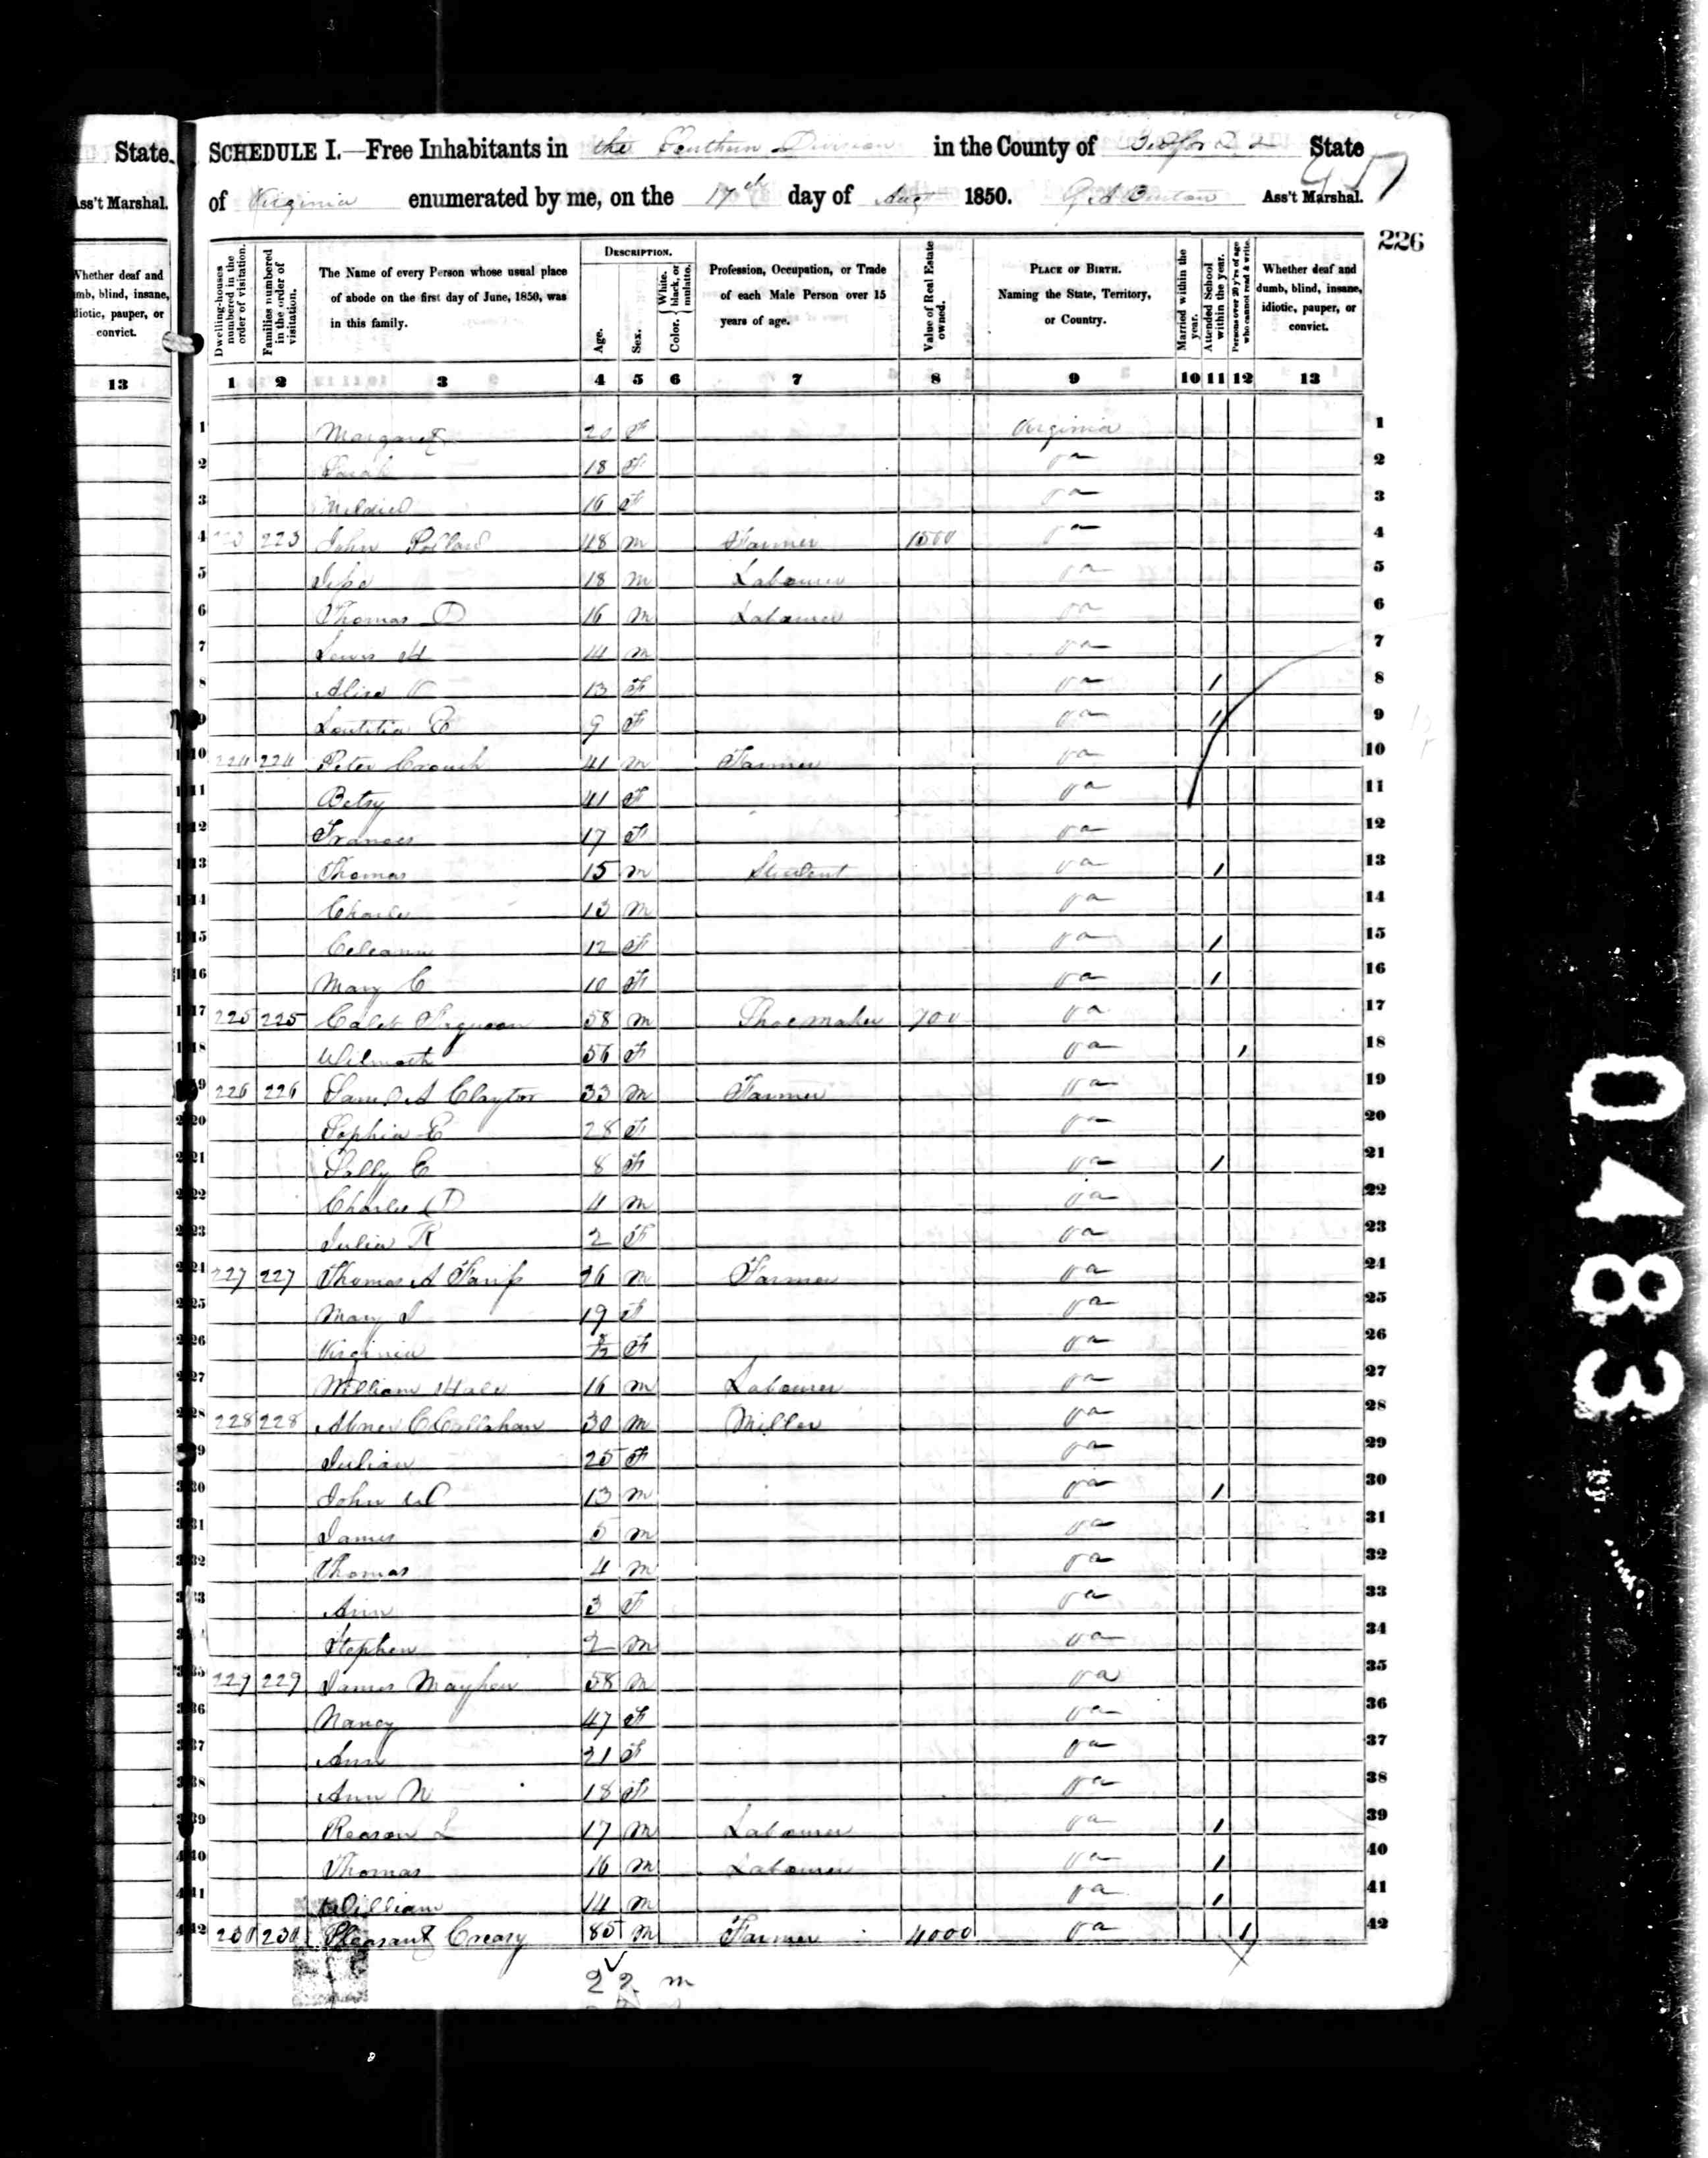 State.
Ass't Marshal.
Whether deaf and
dumb, blind, insane,
idiotic, pauper, or
convict.
13
SCHEDULE I.—Free Inhabitants in the Southern Division in the County of Bedford State
of Virginia enumerated by me, on the 17th day of Aug 1850. Ass't Marshal.
226
Dwelling-houses numbered in the order of visitation.
Families numbered in the order of visitation.
The Name of every Person whose usual place of abode on the first day of June, 1850, was in this family.
DESCRIPTION.
Age.
Sex.
Color. White, black, or mulatto.
Profession, Occupation, or Trade of each Male Person over 15 years of age.
Value of Real Estate owned.
PLACE OF BIRTH. Naming the State, Territory, or Country.
Married within the year.
Attended School within the year.
Persons over 20 y'rs of age who cannot read & write.
Whether deaf and dumb, blind, insane, idiotic, pauper, or convict.
1 2 3 4 5 6 7 8 9 10 11 12 13
1 Margaret 20 F Virginia 1
2 Sarah 18 F Va 2
3 16 F Va 3
4 223 223 John Pollard 48 m Farmer 1500 Va 4
5 18 m Labourer Va 5
6 Thomas D 16 m Labourer Va 6
7 Lewis H 14 m Va 7
8 Aliza V 13 F Va 1 8
9 Loutitia E 9 F Va 1 9
10 224 224 Peter Crouch 41 m Farmer Va 10
11 Betsy 41 F Va 11
12 Frances 17 F Va 12
13 Thomas 15 m Student Va 1 13
14 Charles 13 m Va 14
15 12 F Va 1 15
16 Mary C 10 F Va 1 16
17 225 225 Caleb Ferguson 58 m Shoemaker 700 Va 17
18 Wilmoth 56 F Va 1 18
19 226 226 Clayton 33 m Farmer Va 19
20 Sophia E 28 F Va 20
21 Sally C 8 F Va 1 21
22 Charles D 4 m Va 22
23 Julia R 2 F Va 23
24 227 227 Thomas A 26 m Farmer Va 24
25 Mary S 19 F Va 25
26 Virginia F Va 26
27 William Hale 16 m Labourer Va 27
28 228 228 Abner C Callahan 30 m Miller Va 28
29 Julian 25 F Va 29
30 John W 13 m Va 1 30
31 James 5 m Va 31
32 Thomas 4 m Va 32
33 Ann 3 F Va 33
34 Stephen 2 m Va 34
35 229 229 James Mayhew 58 m Va 35
36 Nancy 47 F Va 36
37 Ann 21 F Va 37
38 Ann M 18 F Va 38
39 Reason L 17 m Labourer Va 1 39
40 Thomas 16 m Labourer Va 1 40
41 William 14 m Va 1 41
42 230 230 Pleasant Creasy 85 m Farmer 4000 Va 1 42
22 m
0483